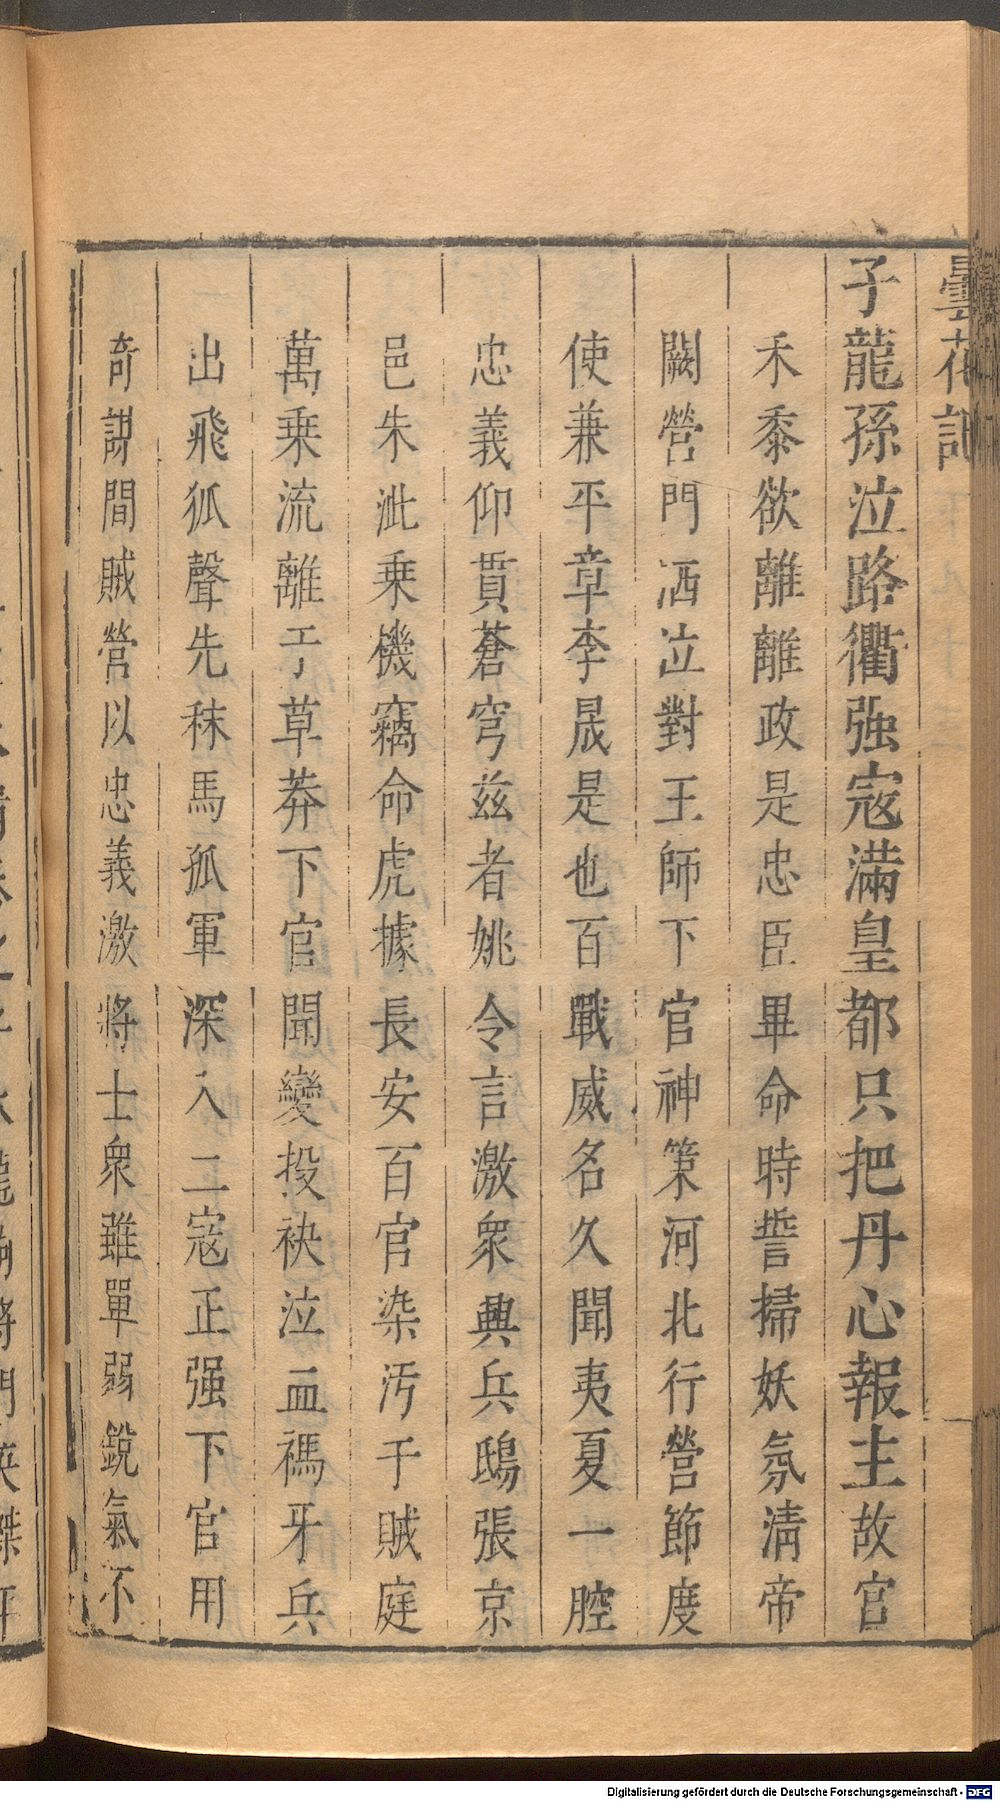 曇花記
子龍孫泣路衢强寇滿皇都只把丹心報主故官
禾黍欲離離政是忠臣畢命時誓掃妖氛清帝
闕營門洒泣對王師下官神策河北行營節度
使兼平章李晟是也百戰威名久聞夷夏一腔
忠義仰貫蒼穹兹者姚令言激衆興兵鴟張京
邑朱泚乗機竊命虎據長安百官染汚于賊庭
萬乗流離于草莽下官聞變投袂泣血禡牙兵
出飛狐聲先秣馬孤軍深入二寇正强下官用
奇謀間賊營以忠義激將士衆雖單弱銳氣不
Digitalisierung gefördert durch die Deutsche Forschungsgemeinschaft - DFG